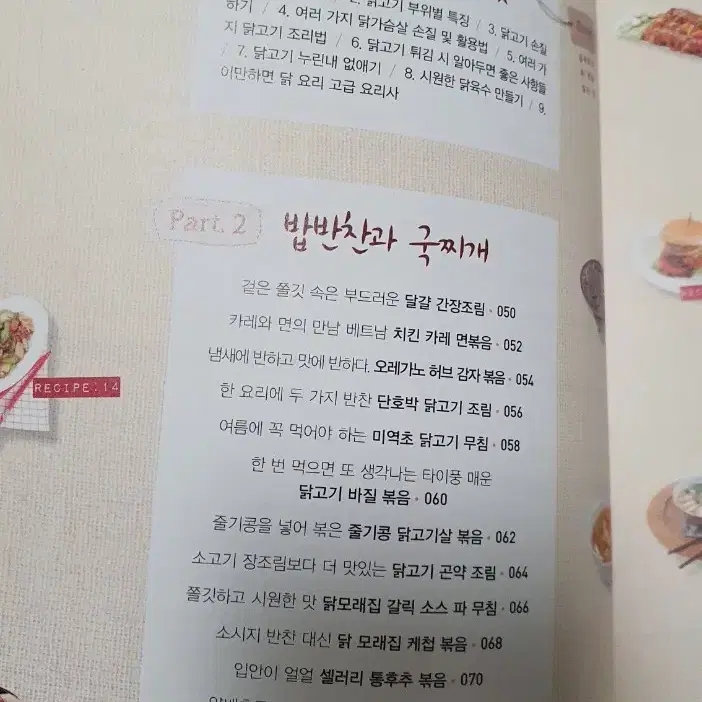 닭고기 부위별 특징 / 3. 닭고기 손질
하기 / 4. 여러 가지 닭가슴살 손질 및 활용법 / 5. 여러 가
지 닭고기 조리법 / 6. 닭고기 튀김 시 알아두면 좋은 사항들
/ 7. 닭고기 누린내 없애기 / 8. 시원한 닭육수 만들기 / 9.
이만하면 닭 요리 고급 요리사
Part. 2 밥반찬과 국찌개
겉은 쫄깃 속은 부드러운 달걀 간장조림 · 050
카레와 면의 만남 베트남 치킨 카레 면볶음 · 052
냄새에 반하고 맛에 반하다. 오레가노 허브 감자 볶음 · 054
한 요리에 두 가지 반찬 단호박 닭고기 조림 · 056
여름에 꼭 먹어야 하는 미역초 닭고기 무침 · 058
한 번 먹으면 또 생각나는 타이풍 매운
닭고기 바질 볶음 · 060
줄기콩을 넣어 볶은 줄기콩 닭고기살 볶음 · 062
소고기 장조림보다 더 맛있는 닭고기 곤약 조림 · 064
쫄깃하고 시원한 맛 닭모래집 갈릭 소스 파 무침 · 066
소시지 반찬 대신 닭 모래집 케첩 볶음 · 068
입안이 얼얼 셀러리 통후추 볶음 · 070
RECIPE:14